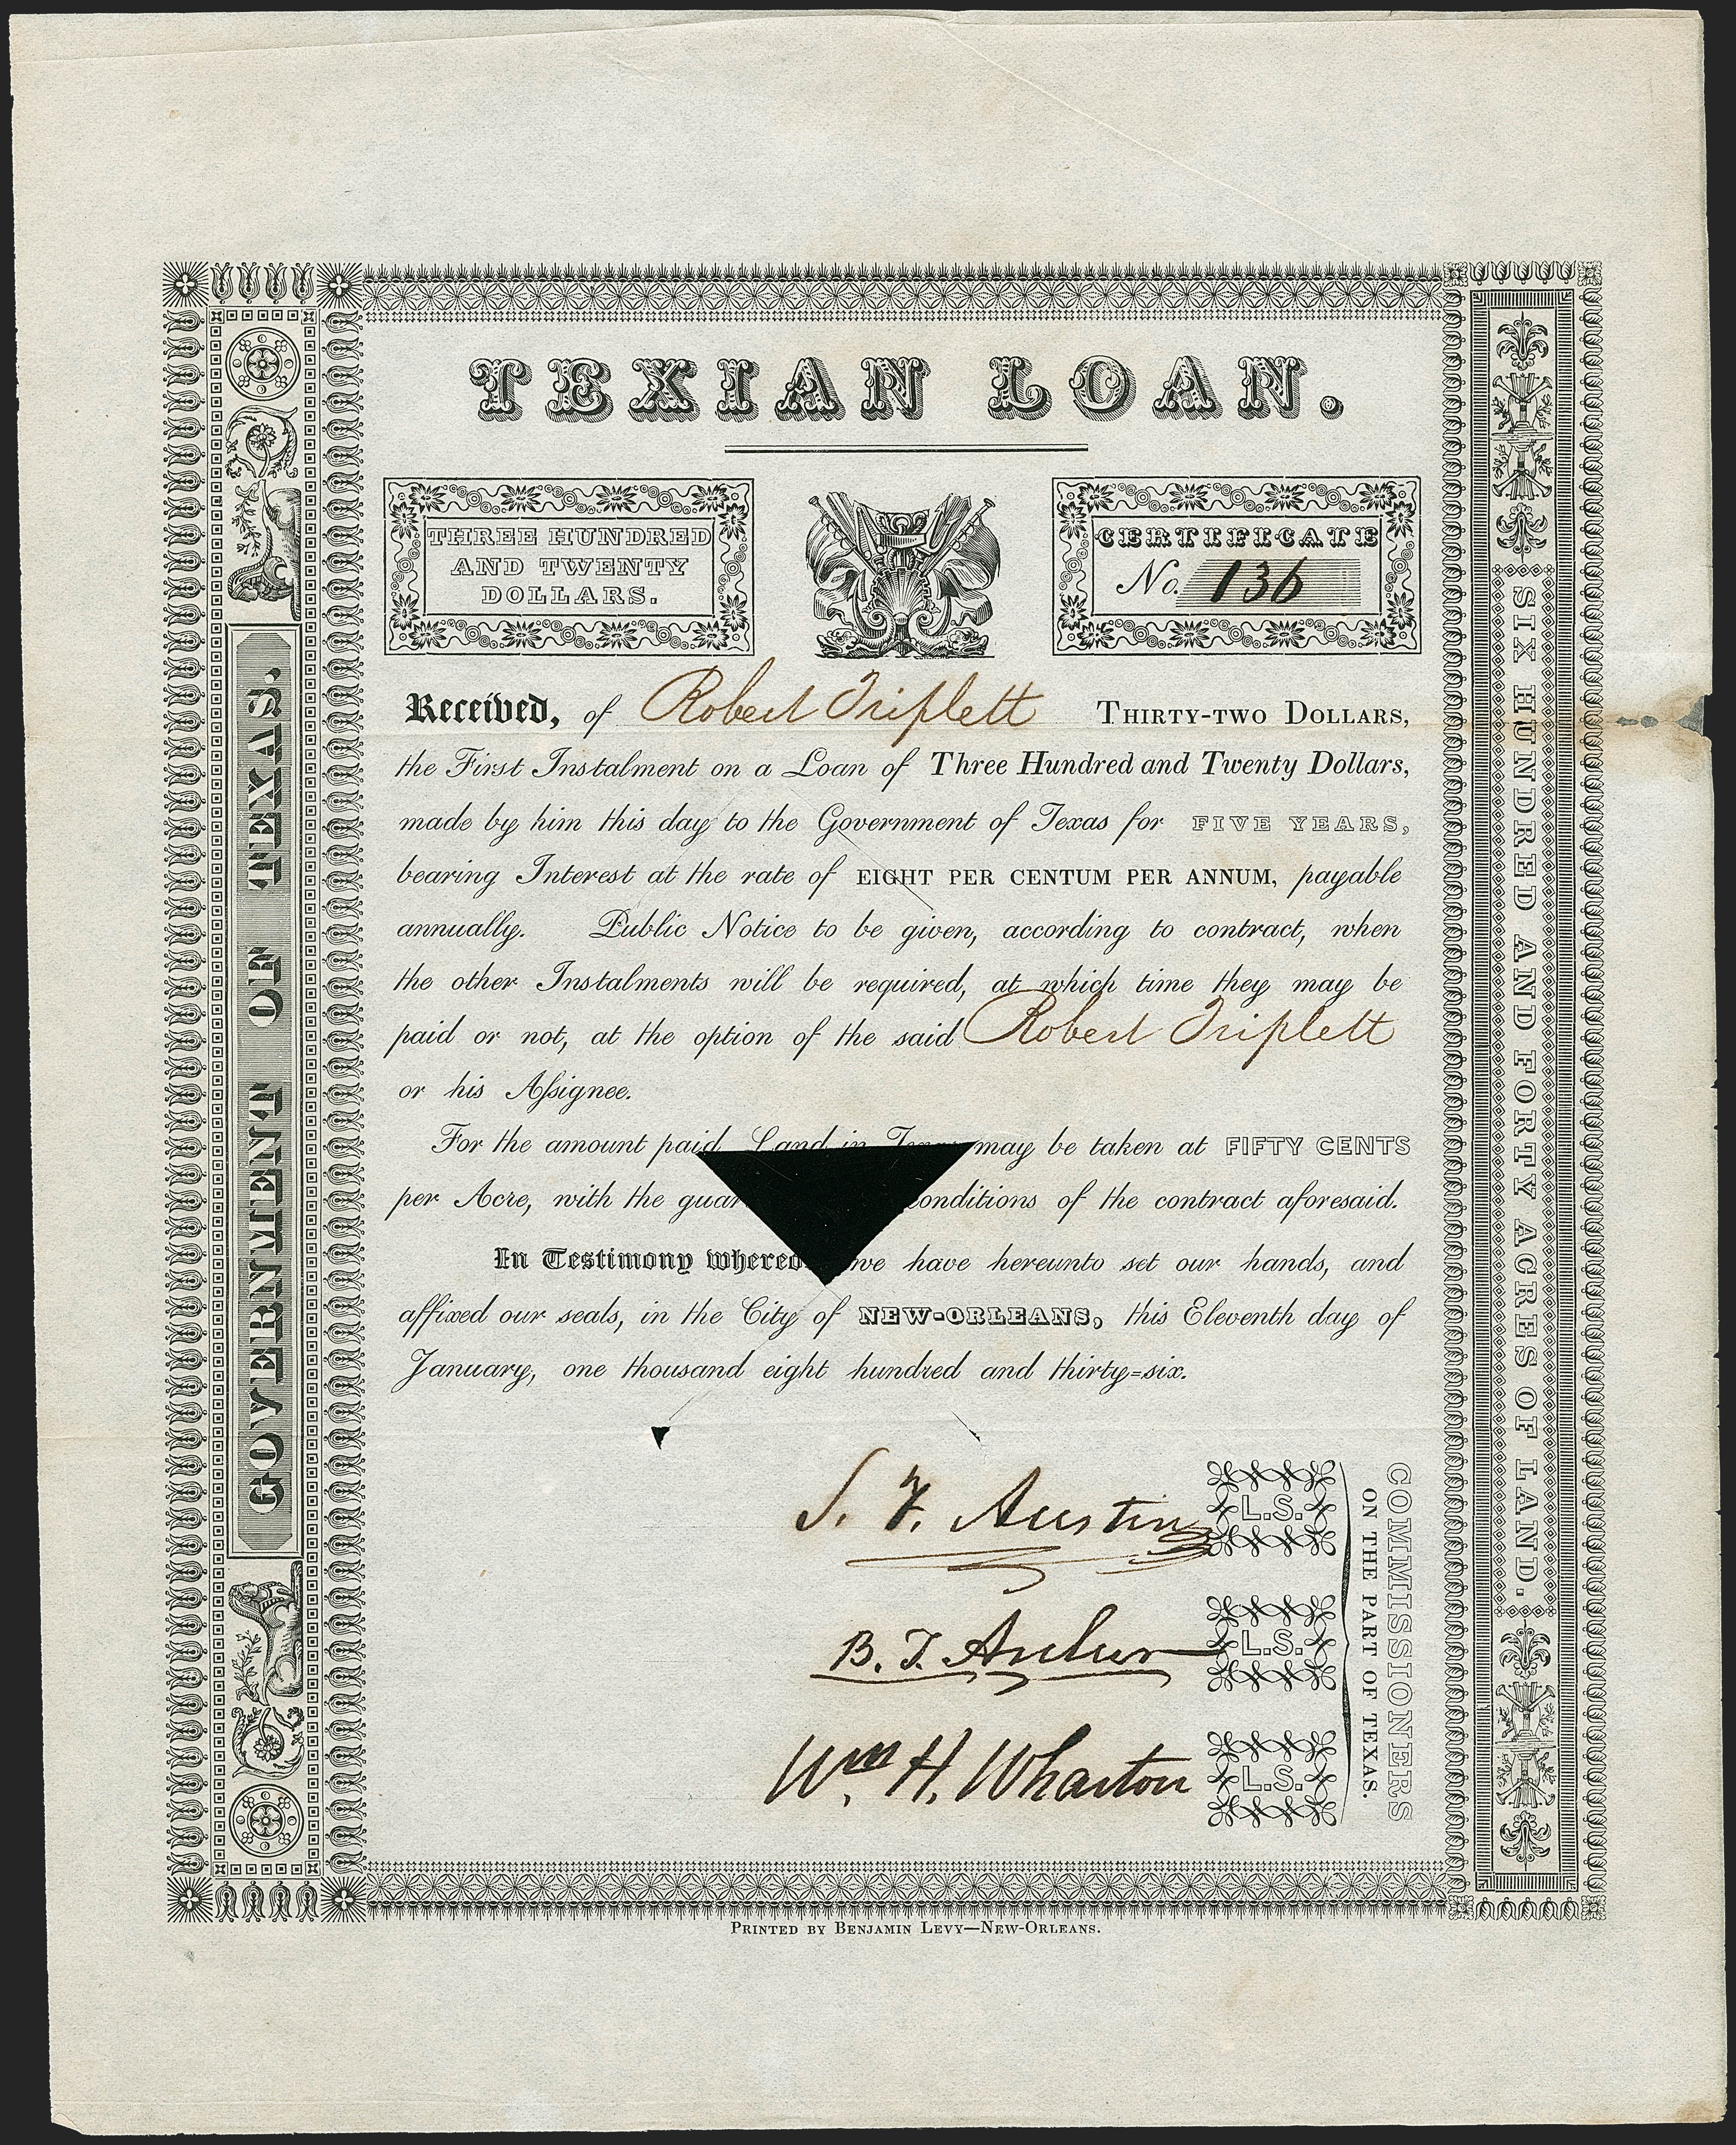 TEXIAN LOAN.
THREE HUNDRED
AND TWENTY
DOLLARS.
CERTIFICATE
No. 136
GOVERNMENT OF TEXAS.
Received, of Robert Triplett THIRTY-TWO DOLLARS,
the First Instalment on a Loan of Three Hundred and Twenty Dollars,
made by him this day to the Government of Texas for FIVE YEARS,
bearing Interest at the rate of EIGHT PER CENTUM PER ANNUM, payable
annually. Public Notice to be given, according to contract, when
the other Instalments will be required, at which time they may be
paid or not, at the option of the said Robert Triplett
or his Assignee.
For the amount paid Land in may be taken at FIFTY CENTS
per Acre, with the conditions of the contract aforesaid.
In Testimony we have hereunto set our hands, and
affixed our seals, in the City of NEW-ORLEANS, this Eleventh day of
January, one thousand eight hundred and thirty-six.
S. F. Austin L.S.
B. T. Archer L.S.
Wm H. Wharton L.S.
COMMISSIONERS
ON THE PART OF TEXAS.
SIX HUNDRED AND FORTY ACRES OF LAND.
PRINTED BY BENJAMIN LEVY—NEW-ORLEANS.